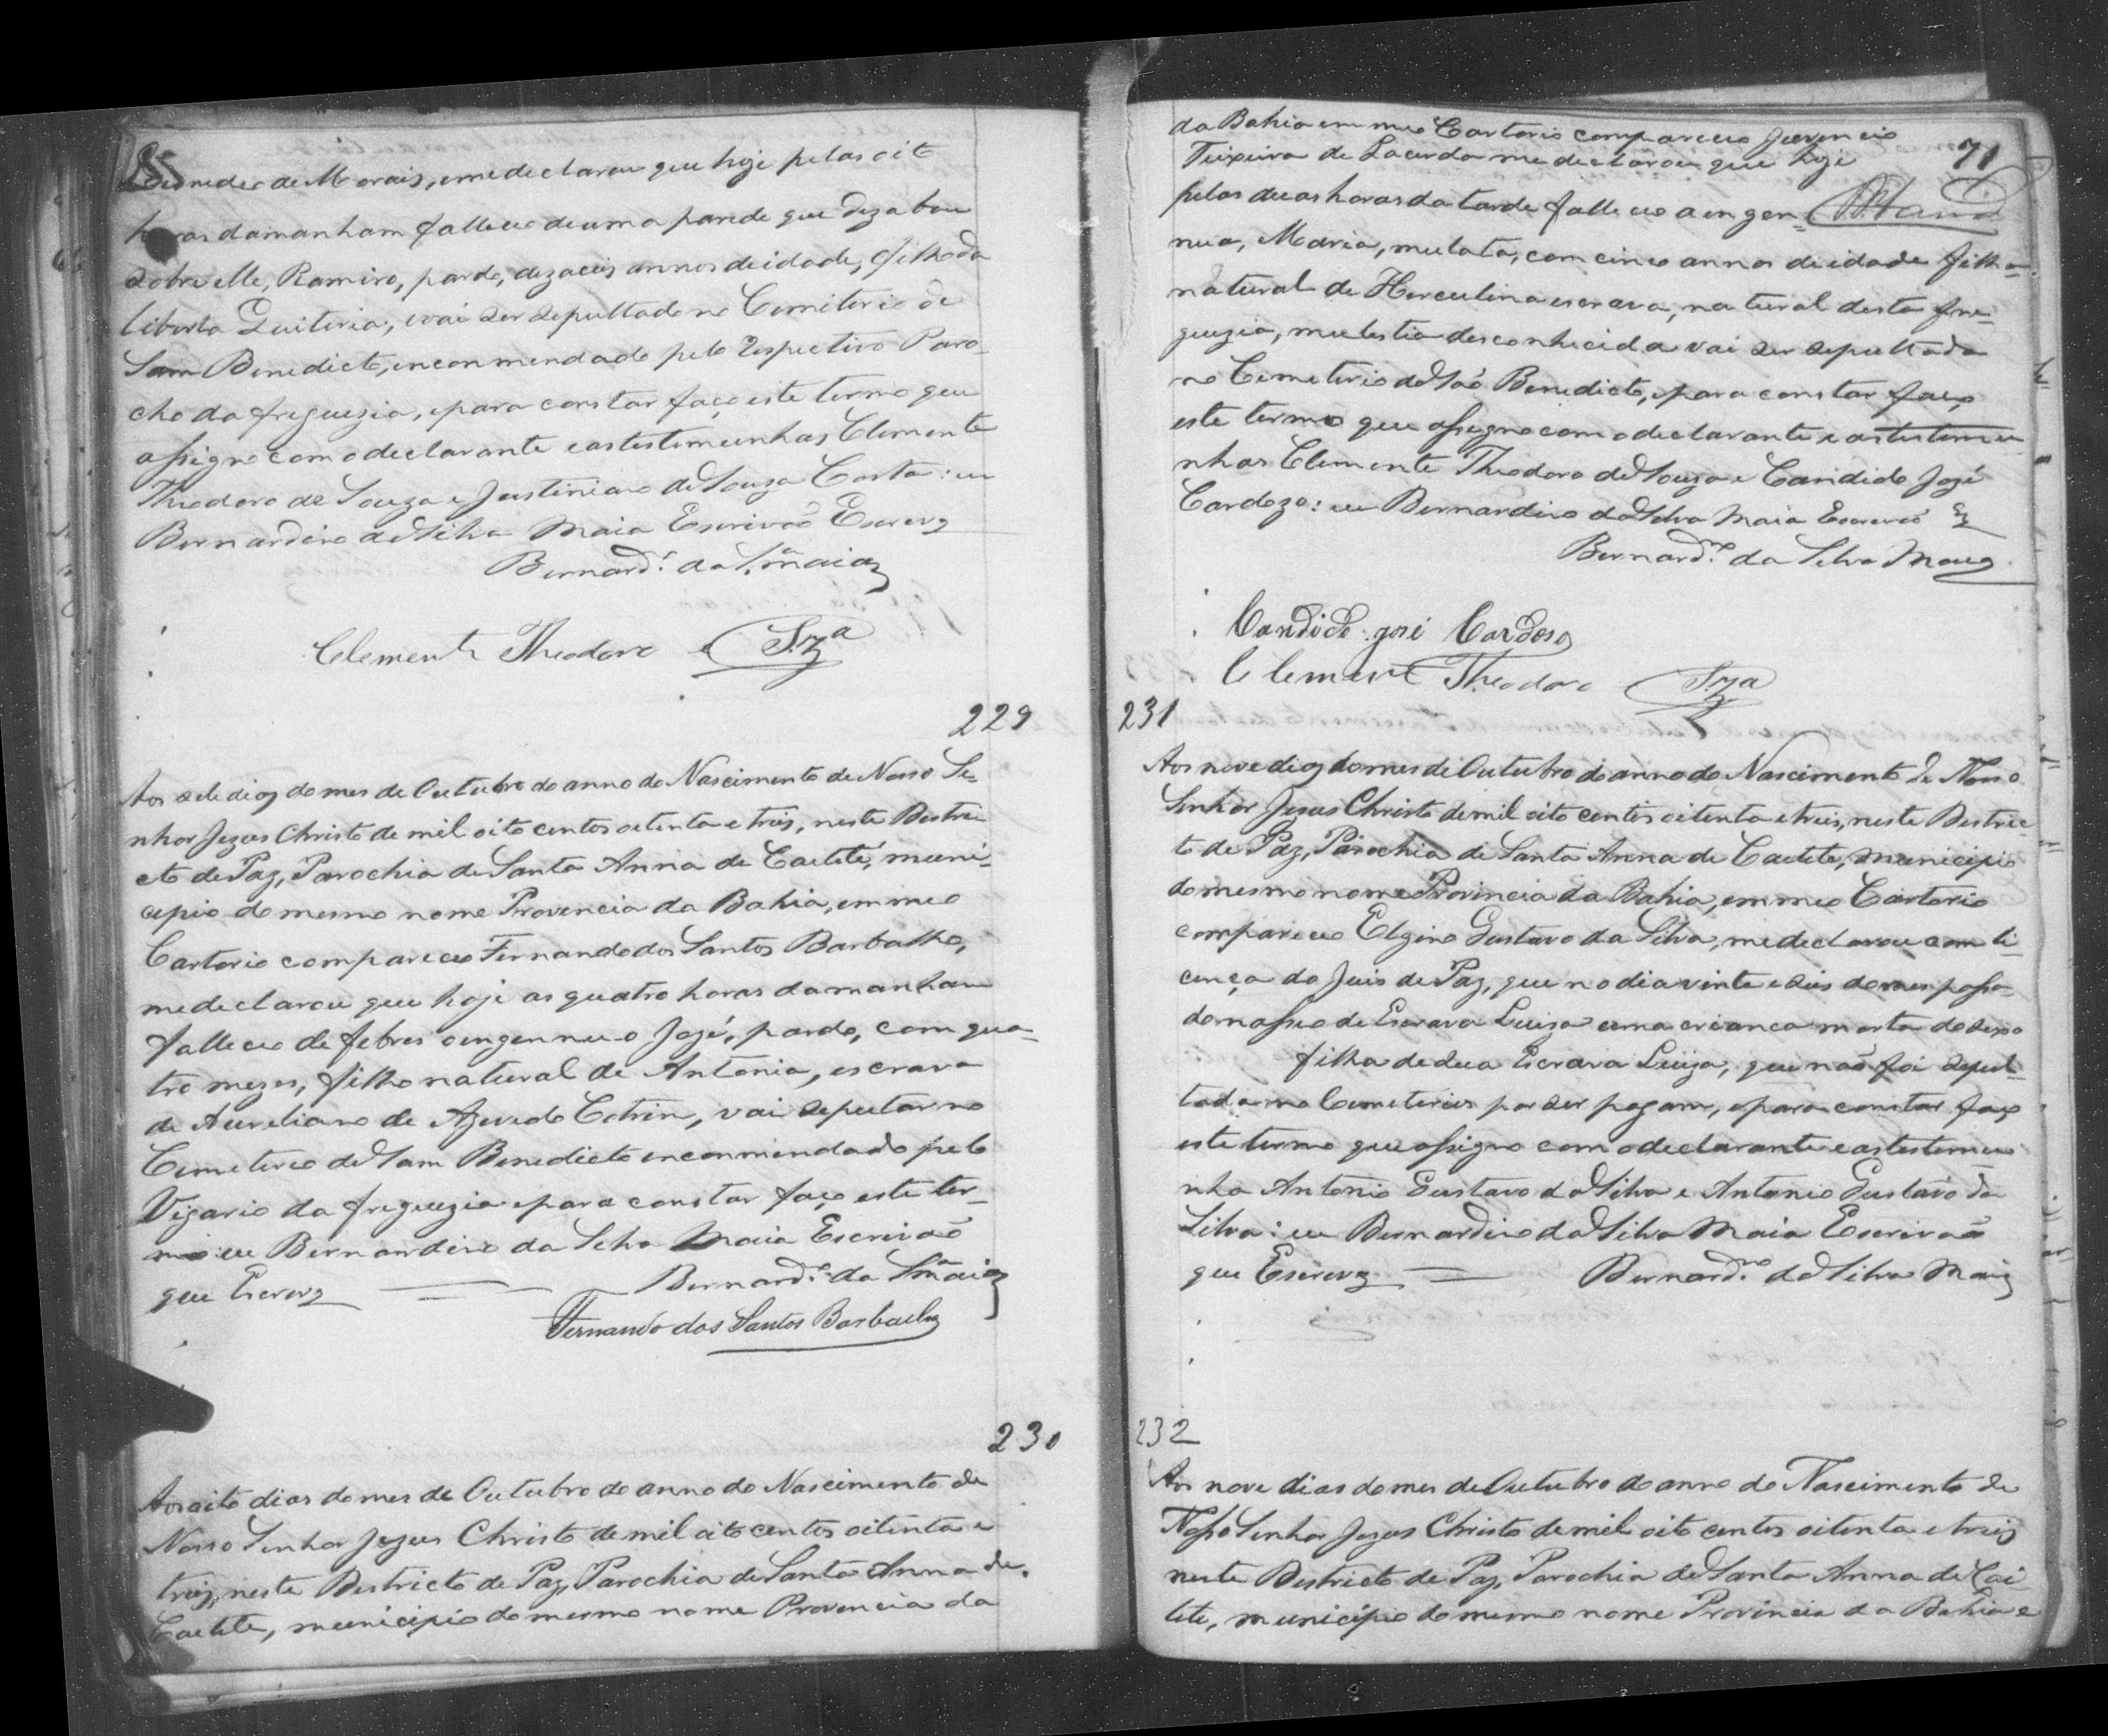 de Morais, e me declarou que hoje pelas oito
horas da manham falleceo de uma parede que dezabou
sobre elle, Ramiro, pardo, dezaceis annos de idade, filho da
liberta Quiteria, vai ser sepultado no Cemiterio de
Sam Benedicto, enconmendado pelo respectivo Paro-
cho da freguezia, epara constar faço este termo que
assigno com o declarante e as testemunhas Clemente
Theodoro de Souza e Justiniano de Souza Costa: eu
Bernardino da Silva Maia Escrivaõ Escrevy
Bernard.º da S.ª Maia
Clemente Theodoro e Sz.ª
229
Aos sete dias do mes de Outubro do anno do Nascimento de Nosso Se-
nhor Jezus Christo de mil oito centos oitenta e tres, neste Destri-
cto de Paz, Parochia de Santa Anna de Caeteté, muni-
cipio do mesmo nome Provencia da Bahia, em meo
Cartorio compareceo Fernando dos Santos Barbalho,
me declarou que hoje as quatro horas da manham
falleceo de febres o engennuo Jozé, pardo, com qua-
tro mezes, filho natural de Antonia, escrava
de Aureliano de Azevedo Cotrin, vai sepultar no
Cemeterio de Sam Benedicto enconmendado pelo
Vigario da freguezia epara constar faço este ter-
mo eu Bernandino da Silva Maia Escrivaõ
que Escrevy Bernard.º da S.ª Maia
Fernando dos Santos Barbalho
230
Aos oito dias do mes de Outubro do anno do Nascimento de
Nosso Senhor Jezus Christo de mil oito centos oitenta e
treis, neste Destricto de Paz, Parochia de Santa Anna de
Caetete, municipio do mesmo nome Provencia da
da Bahia em meo Cartorio compareceo Juvencio
Teixeira de Lacerda me declarou que hoje
71
pelas duas horas da tarde falleceo a engen-
nua, Maria, mulata, com cinco annos de idade filha
natural de Herculina escrava, natural desta fre-
guezia, mulestia desconhecida vai ser sepultada
no Cemeterio de Saõ Benedicto, epara constar faço
este termo que assigno com o declarante e as testemu-
nhas Clemente Theodoro de Souza e Candido José
Cardozo: eu Bernardino da Silva Maia Escrevo
Bernard.no da Silva Maia
Candido José Cardoso
Clemente Theodoro Sza
231
Aos nove dias do mes de Outubro do anno do Nascimento de Nosso
Senhor Jezus Christo de mil oito centos oitenta e treis, neste Destric-
to de Paz, Parochia de Santa Anna de Caetete, municipio
do mesmo nome Provincia da Bahia, em meo Cartorio
compareceo Elgino Gustavo da Silva, me declarou com li-
cença do Juis de Paz, que no dia vinte e seis do mes passa-
do nasseo de Escrava Luiza uma crianca morta do sexo
filha de sua Escrava Luiza, que naõ foi sepul-
tada no Cemeterio por ser pagam, epara constar faço
este termo que assigno com o declarante e as testemu-
nha Antonio Gustavo da Silva e Antonio Gustavo da
Silva: eu Bernardino da Silva Maia Escrivaõ
que Escrevy Bernard.no da Silva Maia
232
Aos nove dias do mes de Outubro do anno do Nascimento de
Nosso Senhor Jezus Christo de mil oito centos oitenta e treis
neste Destricto de Paz, Parochia de Santa Anna de Cai-
tete, municipio do mesmo nome Provincia da Bahia e